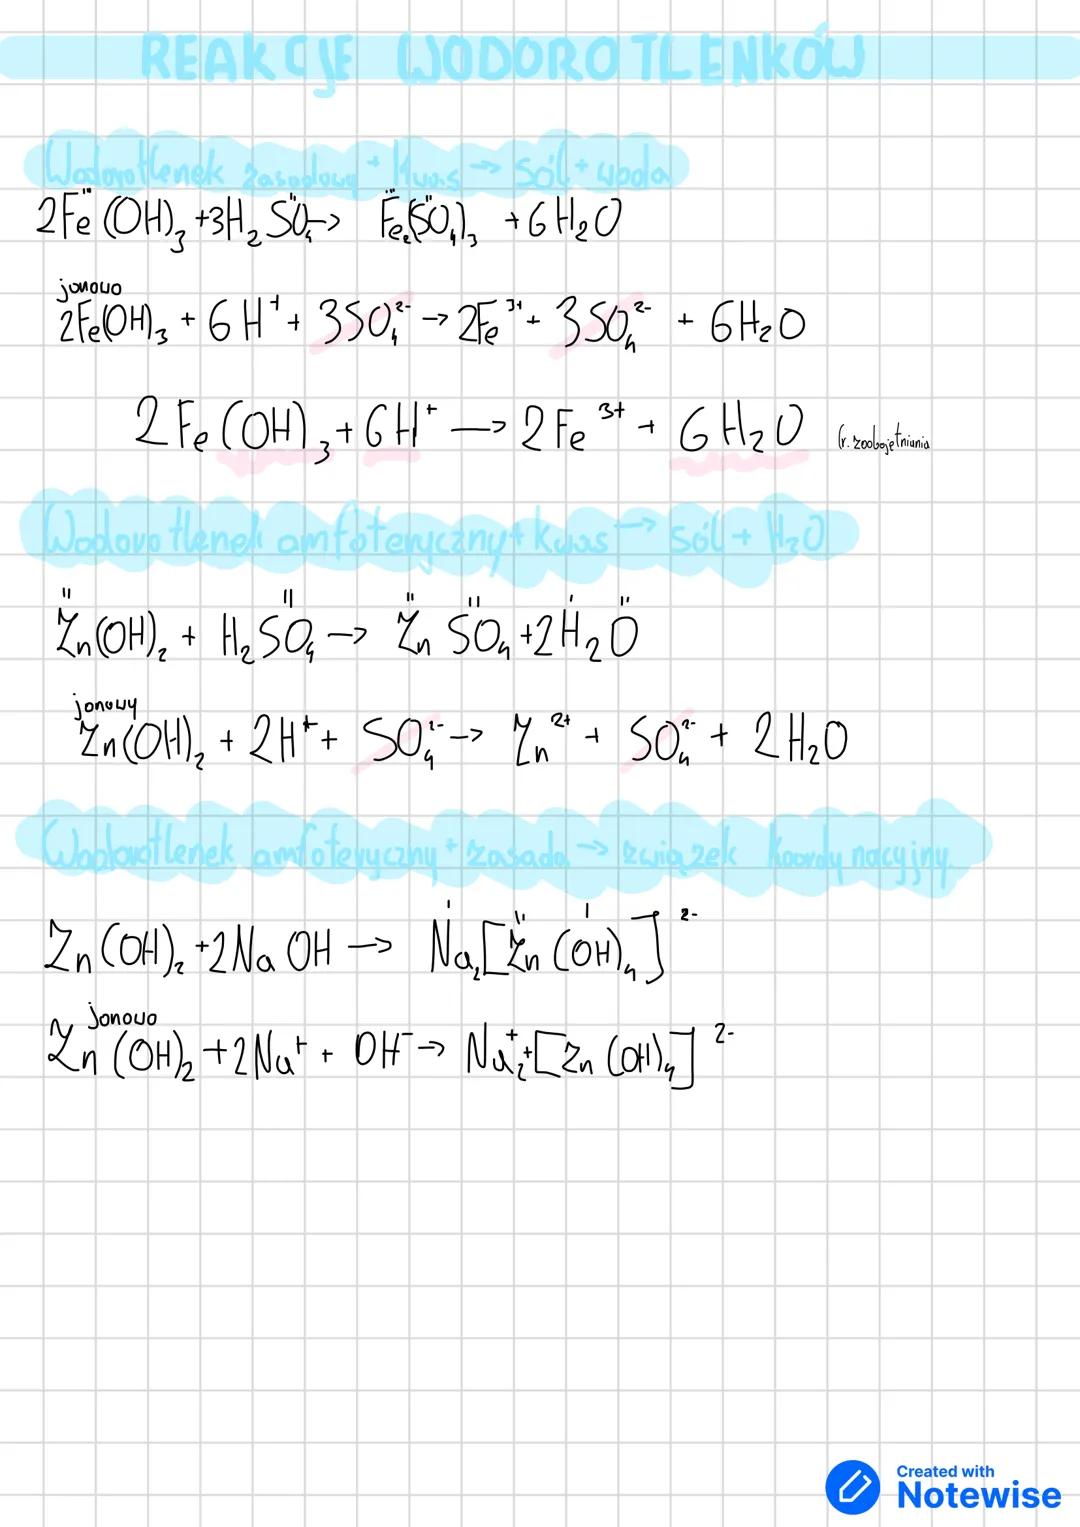 REAKCJE WODOROTLENKÓW
Wodorotlenek zasadowy + kwas → Sól + woda
2Fe^III(OH)₃ + 3H₂SO₄^II → Fe₂^III(SO₄^II)₃ + 6H₂O
jonowo
2Fe(OH)₃ + 6H⁺ + 3SO₄²⁻ → 2Fe³⁺ + 3SO₄²⁻ + 6H₂O
2Fe(OH)₃ + 6H⁺ → 2Fe³⁺ + 6H₂O (r. zobojętniania
Wodorotlenek amfoteryczny + kwas → sól + H₂O
Zn^II(OH)₂ + H₂SO₄^II → Zn^II SO₄^II + 2H₂^I O^II
jonowy
Zn(OH)₂ + 2H⁺ + SO₄²⁻ → Zn²⁺ + SO₄²⁻ + 2H₂O
Wodorotlenek amfoteryczny + zasada → związek koordynacyjny.
Zn(OH)₂ + 2NaOH → Na₂^I[Zn^II(OH)₄^I]²⁻
jonowo
Zn(OH)₂ + 2Na⁺ + OH⁻ → Na₂⁺ + [Zn(OH)₄]²⁻
Created with
Notewise